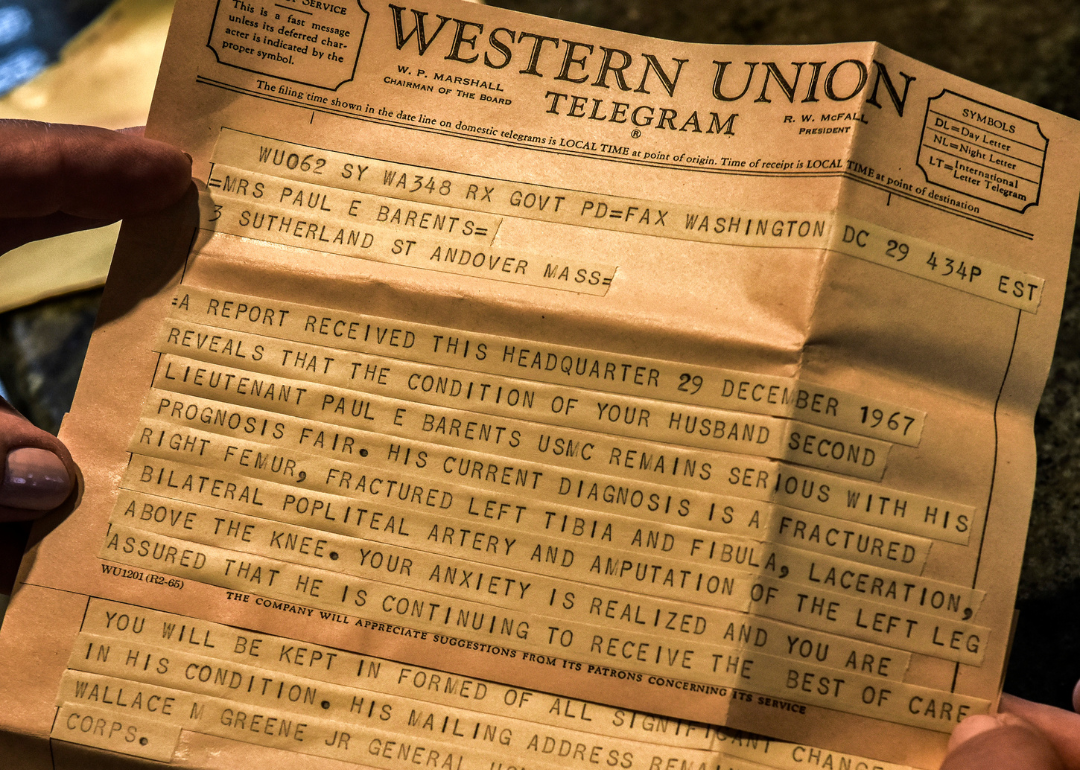 SERVICE
This is a fast message
unless its deferred char-
acter is indicated by the
proper symbol.
WESTERN UNION
TELEGRAM
®
W. P. MARSHALL
CHAIRMAN OF THE BOARD
R. W. McFALL
PRESIDENT
SYMBOLS
DL=Day Letter
NL=Night Letter
LT=International
Letter Telegram
The filing time shown in the date line on domestic telegrams is LOCAL TIME at point of origin. Time of receipt is LOCAL TIME at point of destination
WU062 SY WA348 RX GOVT PD=FAX WASHINGTON DC 29 434P EST
=MRS PAUL E BARENTS=
3 SUTHERLAND ST ANDOVER MASS=
:A REPORT RECEIVED THIS HEADQUARTER 29 DECEMBER 1967
REVEALS THAT THE CONDITION OF YOUR HUSBAND SECOND
LIEUTENANT PAUL E BARENTS USMC REMAINS SERIOUS WITH HIS
PROGNOSIS FAIR. HIS CURRENT DIAGNOSIS IS A FRACTURED
RIGHT FEMUR, FRACTURED LEFT TIBIA AND FIBULA, LACERATION,
BILATERAL POPLITEAL ARTERY AND AMPUTATION OF THE LEFT LEG
ABOVE THE KNEE. YOUR ANXIETY IS REALIZED AND YOU ARE
ASSURED THAT HE IS CONTINUING TO RECEIVE THE BEST OF CARE
WU1201 (R2-65)
THE COMPANY WILL APPRECIATE SUGGESTIONS FROM ITS PATRONS CONCERNING ITS SERVICE
YOU WILL BE KEPT IN FORMED OF ALL SIGNIFICANT CHANGE
IN HIS CONDITION. HIS MAILING ADDRESS
WALLACE M GREENE JR GENERAL
CORPS.